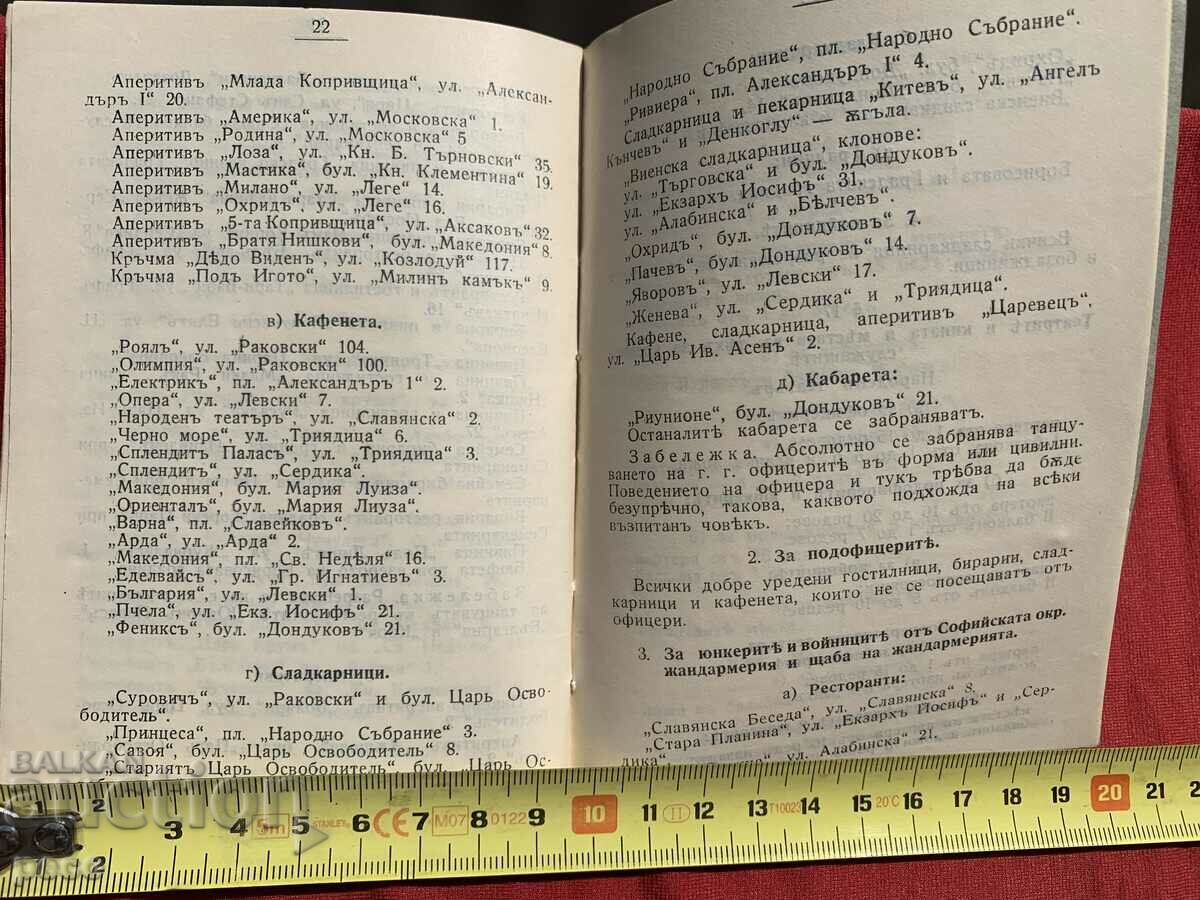 22
Аперитивъ „Млада Копривщица“, ул. „Алексан-
дъръ I“ 20.
Аперитивъ „Америка“, ул. „Московска“ 1.
Аперитивъ „Родина“, ул. „Московска“ 5
Аперитивъ „Лоза“, ул. „Кн. Б. Търновски“ 35.
Аперитивъ „Мастика“, бул. „Кн. Клементина“ 19.
Аперитивъ „Милано“, ул. „Леге“ 14.
Аперитивъ „Охридъ“, ул. „Леге“ 16.
Аперитивъ „5-та Копривщица“, ул. „Аксаковъ“ 32.
Аперитивъ „Братя Нишкови“, бул. „Македония“ 8.
Кръчма „Дѣдо Виденъ“, ул. „Козлодуй“ 117.
Кръчма „Подъ Игото“, ул. „Милинъ камъкъ“ 9.
в) Кафенета.
„Роялъ“, ул. „Раковски“ 104.
„Олимпия“, ул. „Раковски“ 100.
„Електрикъ“, пл. „Александъръ 1“ 2.
„Опера“, ул. „Левски“ 7.
„Народенъ театъръ“, ул. „Славянска“ 2.
„Черно море“, ул. „Триядица“ 6.
„Сплендитъ Паласъ“, ул. „Триядица“ 3.
„Сплендитъ“, ул. „Сердика“.
„Македония“, бул. Мария Луиза“.
„Ориенталъ“, бул. „Мария Лиуза“.
„Варна“, пл. „Славейковъ“.
„Арда“, ул. „Арда“ 2.
„Македония“, пл. „Св. Недѣля“ 16.
„Еделвайсъ“, ул. „Гр. Игнатиевъ“ 3.
„България“, ул. „Левски“ 1.
„Пчела“, ул. „Екз. Иосифъ“ 21.
„Фениксъ“, бул. „Дондуковъ“ 21.
г) Сладкарници.
„Суровичъ“, ул. „Раковски“ и бул. Царь Осво-
бодитель“.
„Принцеса“, пл. „Народно Събрание“ 3.
„Савоя“, бул. „Царь Освободитель“ 8.
„Стариятъ Царь Освободитель“, бул. „Царь Ос-
„Народно Събрание“, пл. „Народно Събрание“.
„Ривиера“, пл. Александъръ I“ 4.
Сладкарница и пекарница „Китевъ“, ул. „Ангелъ
Кънчевъ“ и „Денкоглу“ — ѫгъла.
„Виенска сладкарница“, клонове:
ул. „Търговска“ и бул. „Дондуковъ“.
ул. „Екзархъ Иосифъ“ 31.
ул. „Алабинска“ и „Бѣлчевъ“.
„Охридъ“, бул. „Дондуковъ“ 7.
„Пачевъ“, бул „Дондуковъ“ 14.
„Яворовъ“, ул. „Левски“ 17.
„Женева“, ул. „Сердика“ и „Триядица“.
Кафене, сладкарница, аперитивъ „Царевецъ“.
ул. „Царь Ив. Асенъ“ 2.
д) Кабарета:
„Риунионе“, бул. „Дондуковъ“ 21.
Останалитѣ кабарета се забраняватъ.
Забележка. Абсолютно се забранява танцу-
ването на г. г. офицеритѣ въ форма или цивилни.
Поведението на офицера и тукъ трѣбва да бѫде
безупрѣчно, такова, каквото подхожда на всѣки
възпитанъ човѣкъ.
2. За подофицеритѣ.
Всички добре уредени гостилници, бирарии, слад-
карници и кафенета, които не се посещаватъ отъ
офицери.
3. За юнкеритѣ и войницитѣ отъ Софийската окр.
жандармерия и щаба на жандармерията.
а) Ресторанти:
„Славянска Беседа“, ул. „Славянска“ 8.
„Стара Планина“, ул. „Екзархъ Иосифъ“ и „Сер-
дика“.
ул. Алабинска“ 21.
1 2 3 4 5m 5 STANLEY 6 CE 7 M07 8 0122 9 10 11 II 12 13 T10023 14 15 20°C 16 17 18 19 20 21 2
1 2
BALKA
auction